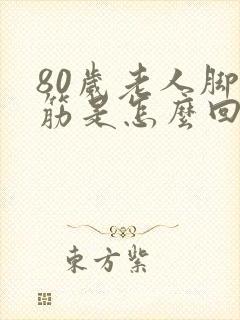 80歲老人脚
筋是怎麼回
東方紫